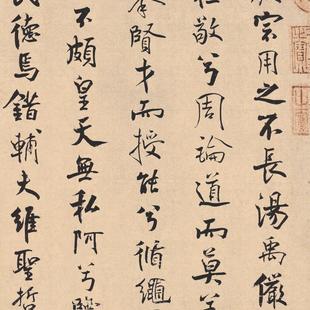 宗用之不長湯禹儼
敬兮周論道而莫差
舉賢才而授能兮循繩
不頗皇天無私阿兮覽
民德焉錯輔夫維聖哲